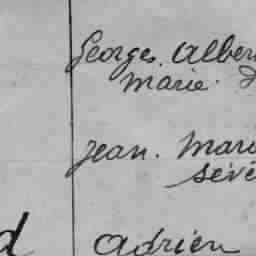 Georges. Alber
marie.
Jean. Mari
sévé
d adrien